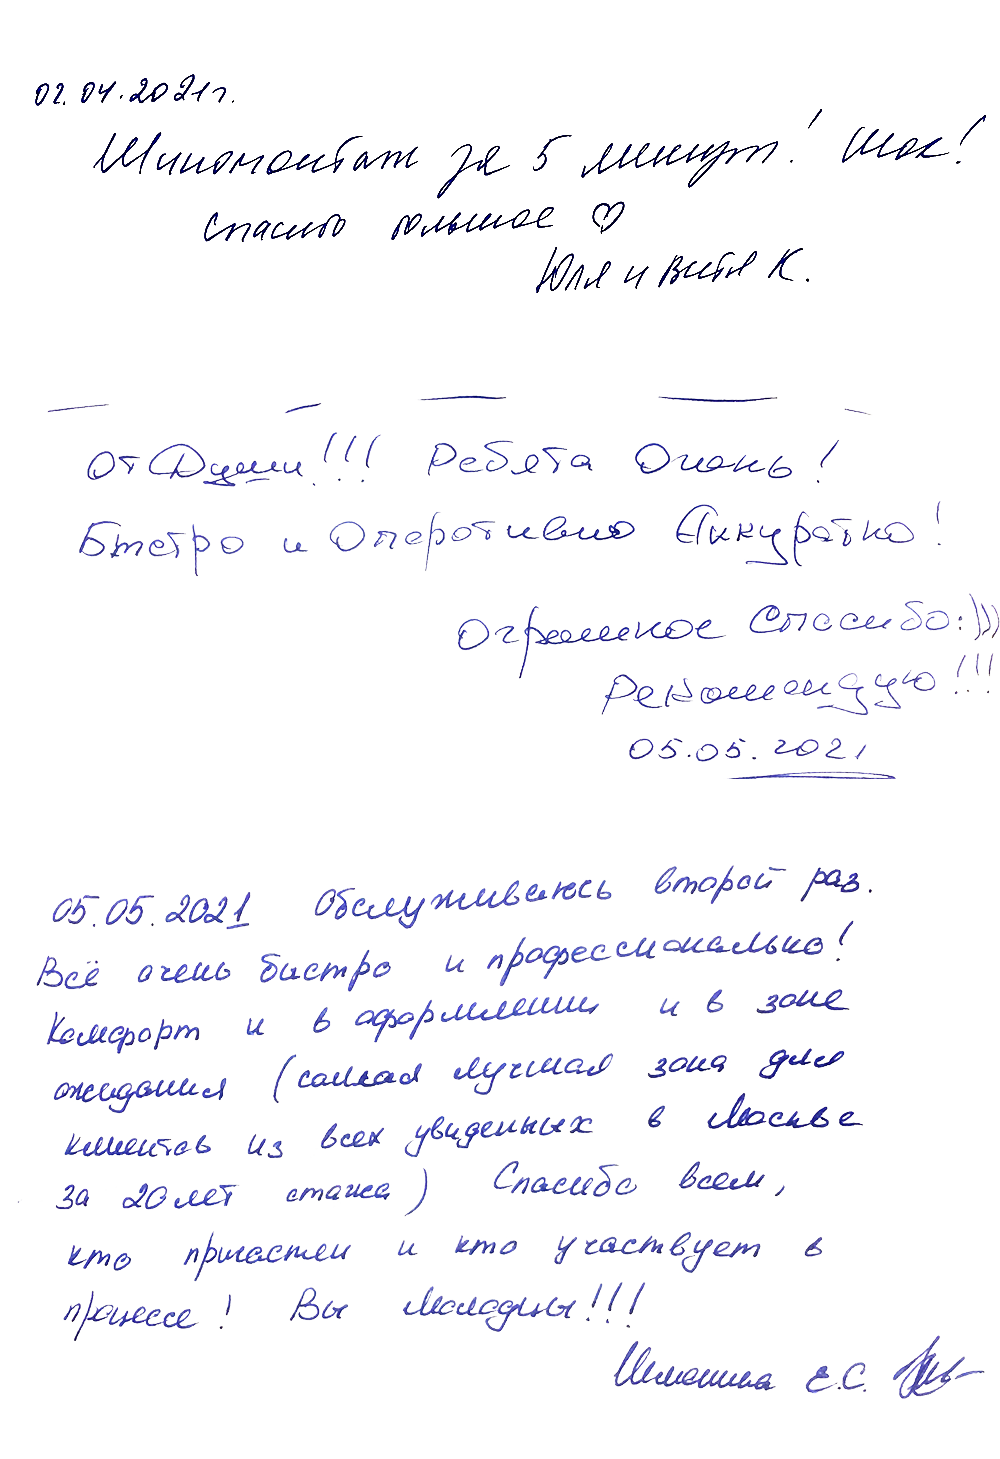 02.04.2021г.
Шиномонтаж за 5 минут! Шок!
Спасибо большое ♡
Юля и Витя К.
От Души!!! Ребята Очень!
Быстро и Оперативно Аккуратно!
Огромное Спасибо:)))
Рекомендую!!!
05.05.2021
05.05.2021 Обслуживаюсь второй раз.
Всё очень быстро и профессионально!
Комфорт и в оформлении и в зоне
ожидания (самая лучшая зона для
клиентов из всех увиденных в Москве
за 20 лет стажа) Спасибо всем,
кто причастен и кто участвует в
процессе! Вы Молодцы!!!
Е.С.